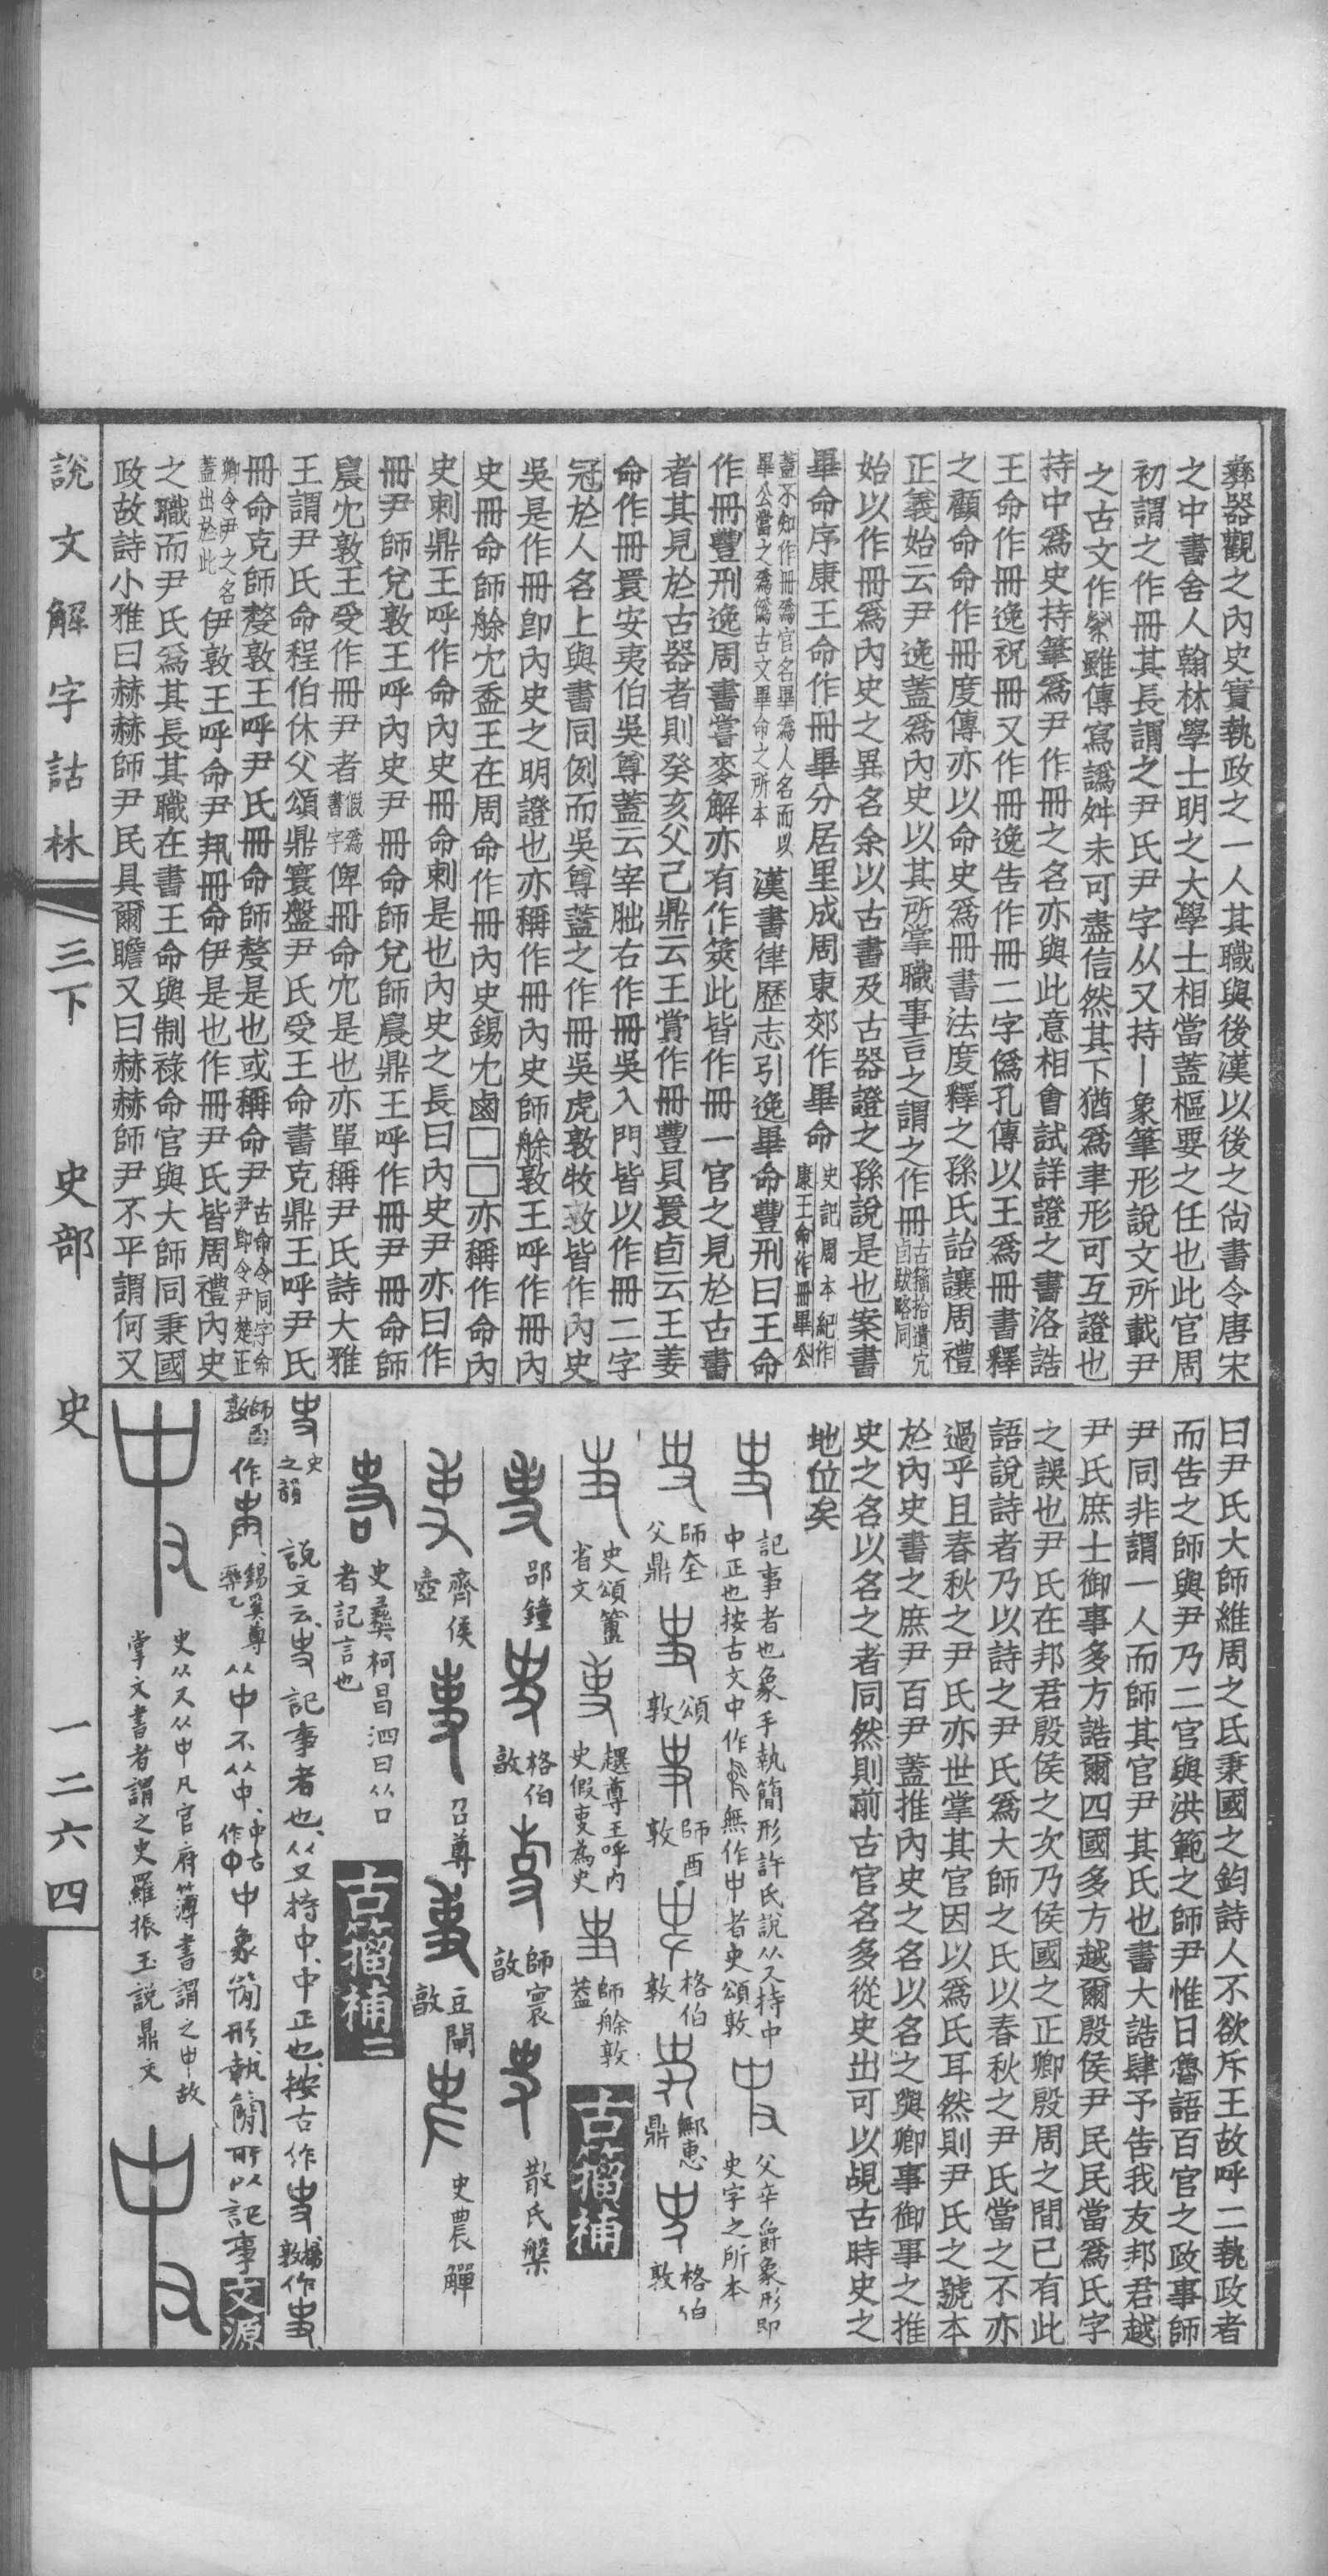 彝器觀之內史實執政之一人其職與後漢以後之尙書令唐宋
之中書舍人翰林學士明之大學士相當蓋樞要之任也此官周
初謂之作冊其長謂之尹氏尹字从又持丨象筆形說文所載尹
之古文作𢁥雖傳寫譌舛未可盡信然其下猶爲聿形可互證也
持中爲史持筆爲尹作冊之名亦與此意相會試詳證之書洛誥
王命作冊逸祝冊又作冊逸告作冊二字僞孔傳以王爲冊書釋
之顧命命作冊度傳亦以命史爲冊書法度釋之孫氏詒讓周禮
正義始云尹逸蓋爲內史以其所掌職事言之謂之作冊古籀拾遺宂卣跋略同
始以作冊爲內史之異名余以古書及古器證之孫說是也案書
畢命序康王命作冊畢分居里成周東郊作畢命史記周本紀作康王命作冊畢公
蓋不知作冊爲官名畢爲人名而以畢公當之爲僞古文畢命之所本漢書律歷志引逸畢命豐刑曰王命
作冊豐刑逸周書嘗麥解亦有作筴此皆作冊一官之見於古書
者其見於古器者則癸亥父己鼎云王賞作冊豐貝睘卣云王姜
命作冊睘安夷伯吳尊蓋云宰朏右作冊吳入門皆以作冊二字
冠於人名上與書同例而吳尊蓋之作冊吳虎敦牧敦皆作內史
吳是作冊卽內史之明證也亦稱作冊內史師艅敦王呼作冊內
史冊命師艅宂盉王在周命作冊內史錫宂鹵□□亦稱作命內
史剌鼎王呼作命內史冊命剌是也內史之長曰內史尹亦曰作
冊尹師兌敦王呼內史尹冊命師兌師晨鼎王呼作冊尹冊命師
晨宂敦王受作冊尹者假爲書字俾冊命宂是也亦單稱尹氏詩大雅
王謂尹氏命程伯休父頌鼎寰盤尹氏受王命書克鼎王呼尹氏
冊命克師嫠敦王呼尹氏冊命師嫠是也或稱命尹古命令同字命尹卽令尹楚正
卿令尹之名蓋出於此伊敦王呼命尹𢍰冊命伊是也作冊尹氏皆周禮內史
之職而尹氏爲其長其職在書王命與制祿命官與大師同秉國
政故詩小雅曰赫赫師尹民具爾瞻又曰赫赫師尹不平謂何又
曰尹氏大師維周之氐秉國之鈞詩人不欲斥王故呼二執政者
而告之師與尹乃二官與洪範之師尹惟日魯語百官之政事師
尹同非謂一人而師其官尹其氏也書大誥肆予告我友邦君越
尹氏庶士御事多方誥爾四國多方越爾殷侯尹民民當爲氏字
之誤也尹氏在邦君殷侯之次乃侯國之正卿殷周之間已有此
語說詩者乃以詩之尹氏爲大師之氏以春秋之尹氏當之不亦
過乎且春秋之尹氏亦世掌其官因以爲氏耳然則尹氏之號本
於內史書之庶尹百尹蓋推內史之名以名之與卿事御事之推
史之名以名之者同然則前古官名多從史出可以覘古時史之
地位矣
記事者也象手執簡形許氏說从又持中中正也按古文中作無作中者史頌敦 父辛爵象形卽史字之所本
師𡘇父鼎 頌敦 師酉敦 格伯敦 鄦惠鼎 格伯敦
史頌簠省文 趩尊王呼內史假吏爲史 師艅敦蓋 古籀補
郘鐘 格伯敦 師寰敦 散氏盤
齊侯壺 召尊 豆閉敦 史農觶
史彝柯昌泗曰从口者記言也 古籀補二
史之韻 說文云史記事者也从又持中中正也按古作史揚敦作史
師酉敦作錫𡢁尊藥乙从中不从中中古作中中象簡形執簡所以記事文源
史从又从中凡官府簿書謂之中故掌文書者謂之史羅振玉說鼎文
說文解字詁林 三下 史部 史 一二六四